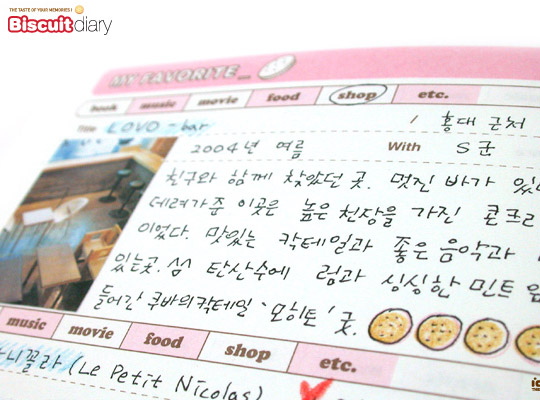 THE TASTE OF YOUR MEMORIES!
Biscuit diary
MY FAVORITE...
book music movie food shop etc.
Title LOVO-bar / 홍대 근처
2004년 여름 With S군
친구와 함께 찾았던 곳. 멋진 바가
데려가 준 이곳은 높은 천장을 가진
이었다. 맛있는 칵테일과 좋은 음악과
있는곳. 탄산수에 럼과 싱싱한 민트
들어간 쿠바의 칵테일 '모히토' 굿.
music movie food shop etc.
니꼴라 (Le Petit Nicolas)